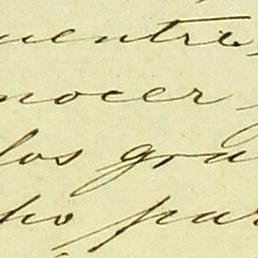 uentre
nocer
los gra
ho par